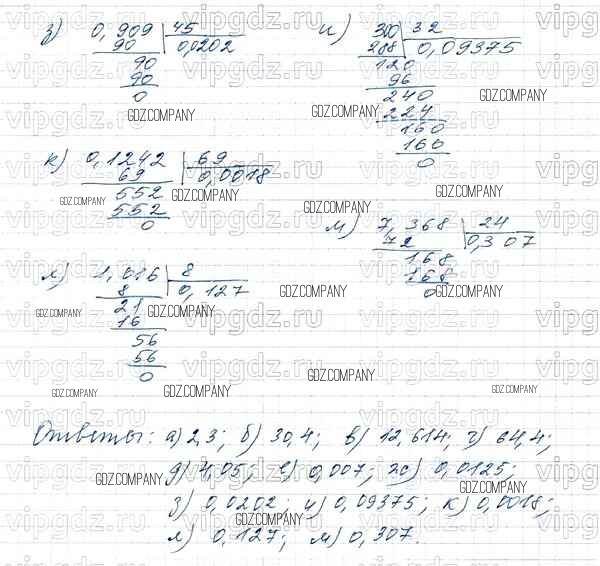 з) 0,909 | 45
90 0,0202
90
90
0
и) 300 | 32
288 0,09375
120
96
240
224
160
160
0
к) 0,1242 | 69
69 0,0018
552
552
0
л) 1,016 | 8
8 0,127
21
16
56
56
0
м) 7,368 | 24
72 0,307
168
168
0
Ответы: а) 2,3; б) 30,4; в) 12,614; г) 64,4;
д) 4,05; е) 0,007; ж) 0,0125;
з) 0,0202; и) 0,09375; к) 0,0018;
л) 0,127; м) 0,307.
vipgdz.ru
GDZ.COMPANY